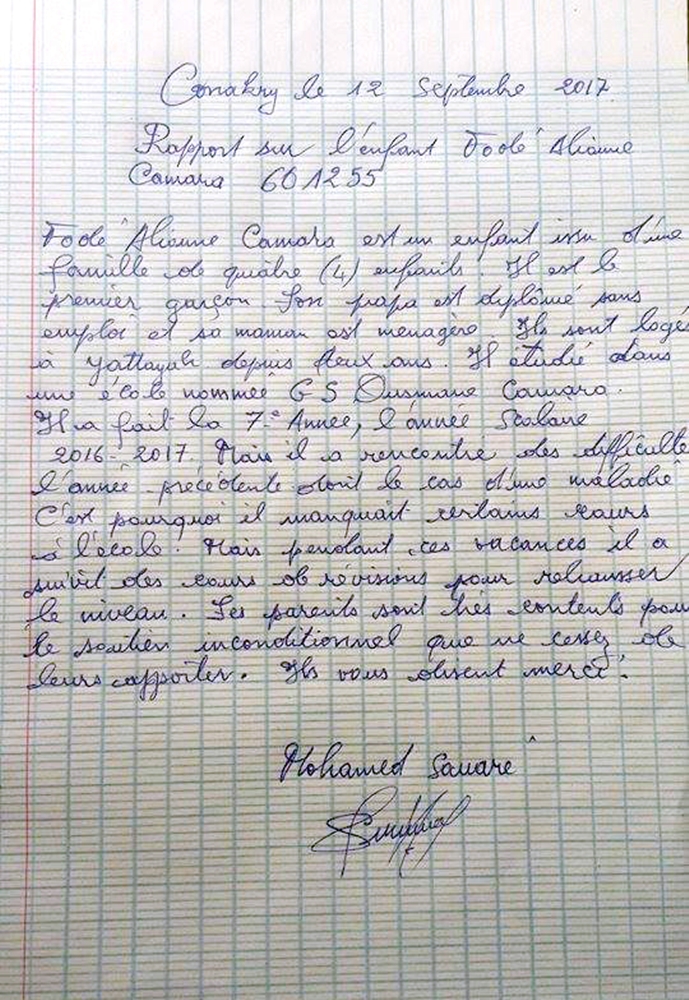 Conakry le 12 Septembre 2017
Rapport sur l'enfant Fodé Alioune
Camara 601255
Fodé Alioune Camara est un enfant issu d'une
famille de quatre (4) enfants. Il est le
premier garçon. Son papa est diplômé sans
emploi et sa maman est menagère. Ils sont logés
à yattayah depuis deux ans. Il étudié dans
une école nommée G S Ousmane Camara.
Il a fait la 7e Année, l'année Scolaire
2016-2017. Mais il a rencontré des difficulté
l'année précédente dont le cas d'une maladie
C'est pourquoi il manquait certains cours
à l'école. Mais pendant ces vacances il a
suivit des cours de révisions pour rehausser
le niveau. Ses parents sont très contents pour
le soutien inconditionnel que ne cessez de
leurs apporter. Ils vous disent merci.
Mohamed Sauaré